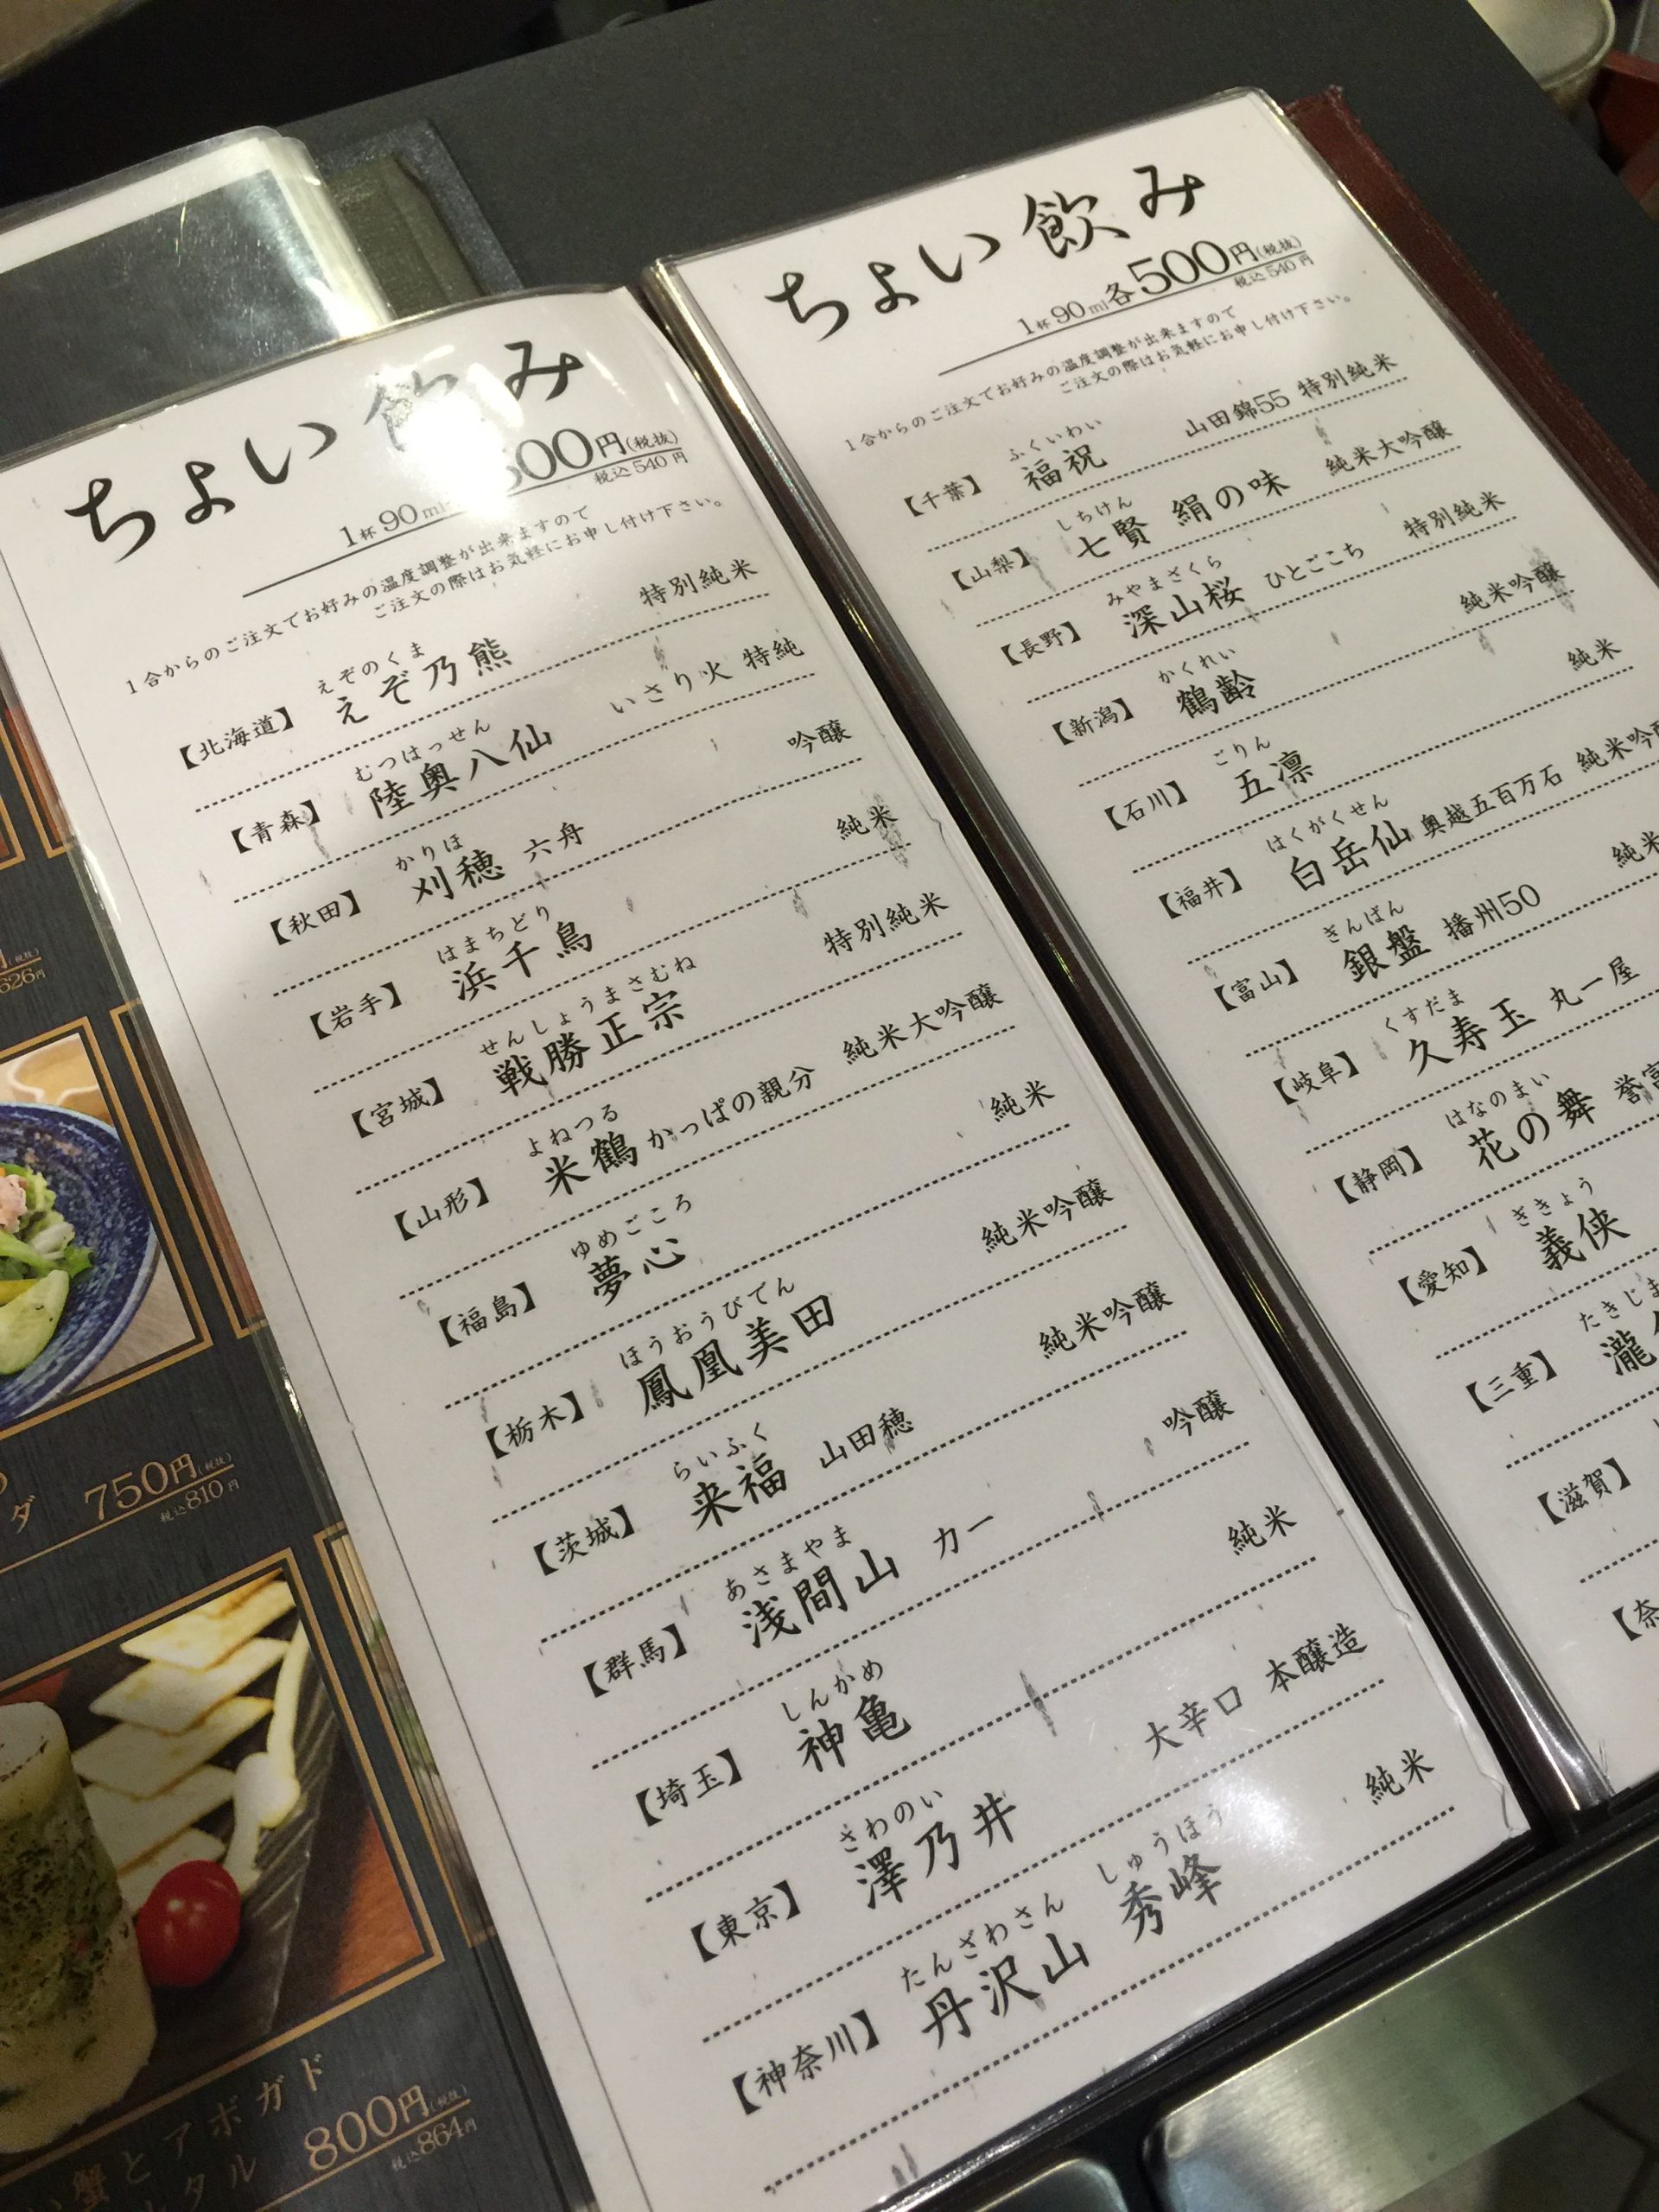 円(税抜)
626円
ダ 750円(税抜)
税込810円
蟹とアボガド
タル 800円(税抜)
税込864円
ちょい飲み
1杯90ml 500円(税抜)
税込540円
1合からのご注文でお好みの温度調整が出来ますので
ご注文の際はお気軽にお申し付け下さい。
えぞのくま
【北海道】 えぞ乃熊 特別純米
むつはっせん
【青森】 陸奥八仙 いさり火 特純
かりほ
【秋田】 刈穂 六舟 吟醸
はまちどり
【岩手】 浜千鳥 純米
せんしょうまさむね
【宮城】 戦勝正宗 特別純米
よねつる
【山形】 米鶴 かっぱの親分 純米大吟醸
ゆめごころ
【福島】 夢心 純米
ほうおうびでん
【栃木】 鳳凰美田 純米吟醸
らいふく
【茨城】 来福 山田穂 純米吟醸
あさまやま
【群馬】 浅間山 カー 吟醸
しんかめ
【埼玉】 神亀 純米
さわのい
【東京】 澤乃井 大辛口 本醸造
たんざわさん しゅうほう
【神奈川】 丹沢山 秀峰 純米
ちょい飲み
1杯90ml各500円(税抜)
税込540円
1合からのご注文でお好みの温度調整が出来ますので
ご注文の際はお気軽にお申し付け下さい。
ふくいわい
【千葉】 福祝 山田錦55 特別純米
しちけん
【山梨】 七賢 絹の味 純米大吟醸
みやまざくら
【長野】 深山桜 ひとごこち 特別純米
かくれい
【新潟】 鶴齢 純米吟醸
ごりん
【石川】 五凛 純米
はくがくせん
【福井】 白岳仙 奥越五百万石 純米吟醸
ぎんばん
【富山】 銀盤 播州50 純米
くすだま
【岐阜】 久寿玉 丸一屋
はなのまい
【静岡】 花の舞 誉富
ぎきょう
【愛知】 義侠
たきじま
【三重】 瀧
【滋賀】
【奈